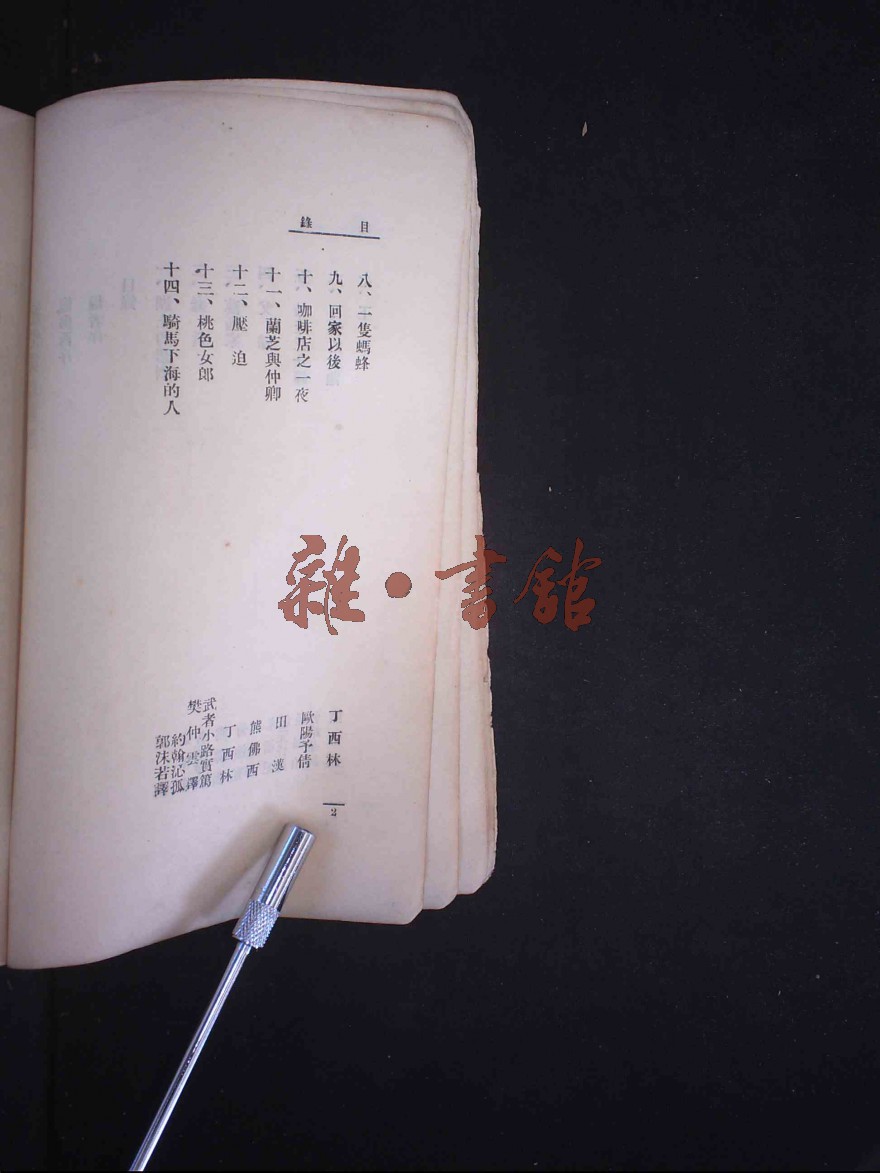 目錄
八、一隻螞蜂
九、回家以後
十、咖啡店之一夜
十一、蘭芝與仲卿
十二、壓迫
十三、桃色女郎
十四、騎馬下海的人
丁西林
歐陽予倩
田漢
熊佛西
丁西林
武者小路實篤
樊仲雲譯
約翰沁孤
郭沫若譯
2
雜·書館